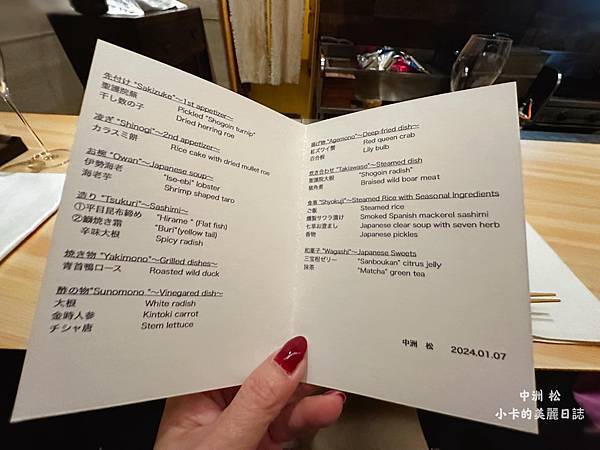 先付け "Sakizuke"～1st appetizer～
聖護院蕪 Pickled "Shogoin turnip"
干し数の子 Dried herring roe
凌ぎ "Shinogi"～2nd appetizer～
カラスミ餅 Rice cake with dried mullet roe
お椀 "Owan"～Japanese soup～
伊勢海老 "Ise-ebi" lobster
海老芋 Shrimp shaped taro
造り "Tsukuri"～Sashimi～
①平目昆布締め "Hirame" (Flat fish)
②鰤焼き霜 "Buri"(yellow tail)
辛味大根 Spicy radish
焼き物 "Yakimono"～Grilled dishes～
青首鴨ロース Roasted wild duck
酢の物"Sunomono "～Vinegared dish～
大根 White radish
金時人参 Kintoki carrot
チシャ唐 Stem lettuce
揚げ物 "Agemono"～Deep-fried dish～
紅ズワイ蟹 Red queen crab
百合根 Lily bulb
炊き合わせ "Takiawase"～Steamed dish
聖護院大根 "Shogoin radish"
猪角煮 Braised wild boar meat
食事 "Shyokuji"～Steamed Rice with Seasonal Ingredients
ご飯 Steamed rice
燻製サワラ漬け Smoked Spanish mackerel sashimi
七草お澄まし Japanese clear soup with seven herb
香物 Japanese pickles
和菓子 "Wagashi"～Japanese Sweets
三宝柑ゼリー "Sanboukan" citrus jelly
抹茶 "Matcha" green tea
中洲 松 2024.01.07
中洲 松
小卡的美麗日誌